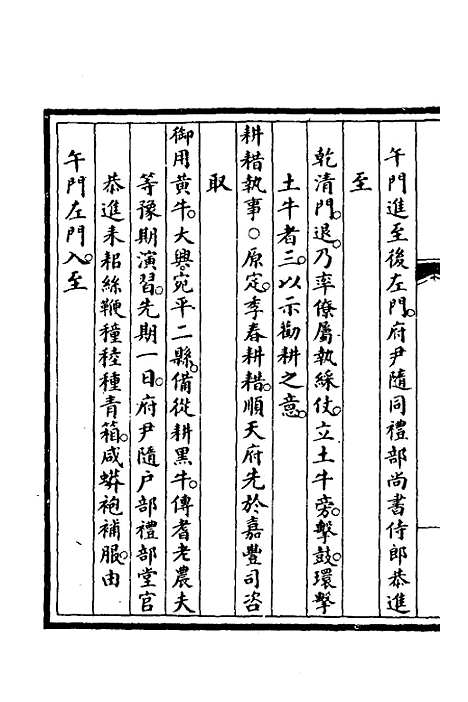 午門進至後左門。府尹隨同禮部尚書侍郎恭進
至
乾清門。退。乃率僚屬執綵仗。立土牛旁。擊鼓。環擊
土牛者三。以示勸耕之意。
耕耤執事○原定。季春耕耤。順天府先於嘉豐司咨
取
御用黄牛。大興。宛平二縣。備從耕黑牛。傳耆老農夫
等豫期演習。先期一日。府尹隨户部禮部堂官
恭進耒耜絲鞭穜稑種青箱。咸蟒袍補服。由
午門左門入。至